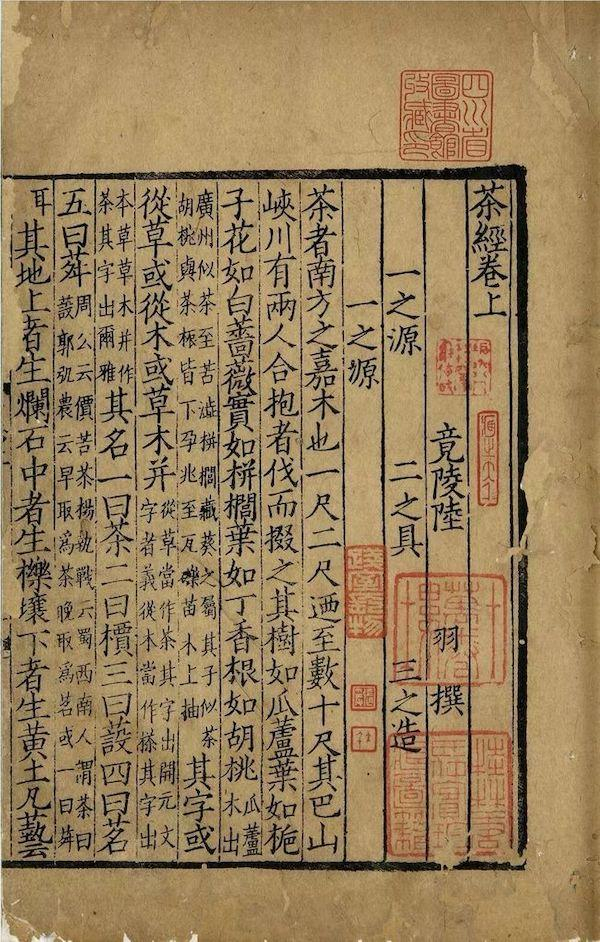 四川省
圖書館
收藏印
茶經卷上
竟陵陸 羽 撰
一之源 二之具 三之造
一之源
茶者南方之嘉木也一尺二尺迺至數十尺其巴山
峽川有兩人合抱者伐而掇之其樹如瓜蘆葉如梔
子花如白薔薇實如栟櫚葉如丁香根如胡桃瓜蘆木出
廣州似茶至苦澁栟櫚藏葵之屬其子似茶胡桃與茶根皆下孕兆至瓦礫苗木上抽其字或
從草或從木或草木并從草當作茶其字出開元文字者義從木當作㮈其字出
本草草木并作茶其字出爾雅其名一曰茶二曰檟三曰設四曰茗
五曰荈周公云價苦茶楊執戰云蜀西南人謂茶曰蔎郭弘農云早取爲茶晚取爲茗或一曰荈
耳其地上者生爛石中者生櫟壤下者生黃土凡藝